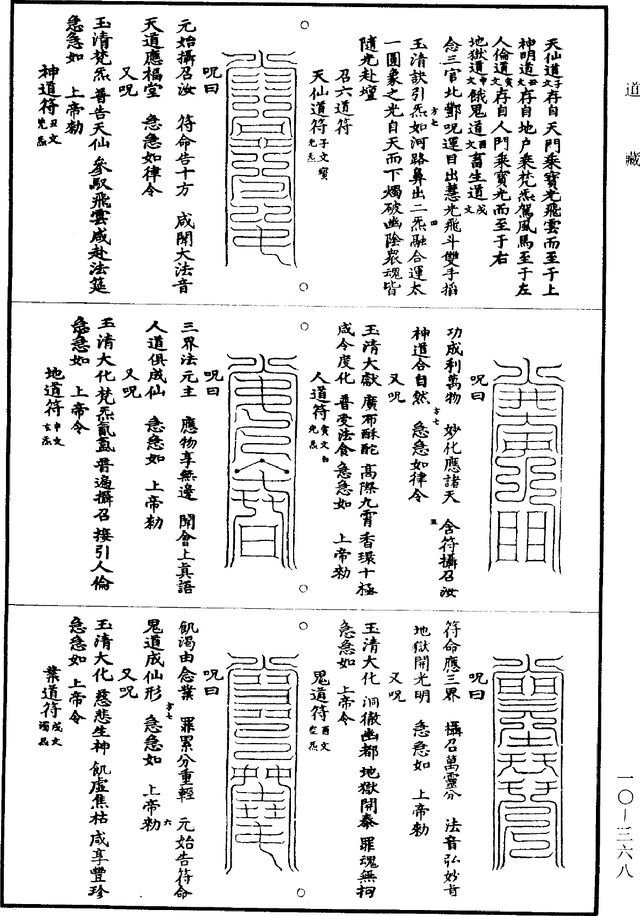 道藏
天仙道子文存自天門乘寶光飛雲而至于上
神明道丑文存自地户乘梵炁駕風馬至于左
人倫道寅文存自人門乘寶光而至于右
地獄道申文餓鬼道酉文畜生道戌文
念三官北酆呪運目出慧光飛斗雙手掐
玉清訣引炁如河路鼻出二炁融合運太
一圓象之光自天而下燭破幽陰衆魂皆
隨光赴壇
召六道符
天仙道符子文寶光炁
呪曰
元始攝召汝 符命告十方 咸聞大法音
天道應福堂 急急如律令
又呪
玉清梵炁 普告天仙 參馭飛雲咸赴法筵
急急如 上帝勅
神道符丑文梵炁
呪曰
功成利萬物 妙化應諸天 含符攝召汝
神道合自然 急急如律令
又呪
玉清大獻 廣布酥酡 高際九霄 香環十極
咸令度化 普受法食 急急如 上帝勅
人道符寅文光炁
呪曰
三界法元主 應物享無邊 聞會上真語
人道俱成仙 急急如 上帝勅
又呪
玉清大化 梵炁氤氳 普遍攝召 接引人倫
急急如 上帝令
地道符申文玄炁
呪曰
符命應三界 攝召萬靈分 法音弘妙旨
地獄開光明 急急如 上帝勅
又呪
玉清大化 洞徹幽都 地獄開泰 罪魂無拘
急急如 上帝令
鬼道符酉文空炁
呪曰
飢渴由念業 罪累分重輕 元始告符命
鬼道成仙形 急急如 上帝勅
又呪
玉清大化 慈悲生神 飢虛焦枯 咸享豐珍
急急如 上帝令
業道符戌文濁炁
一〇—三六八